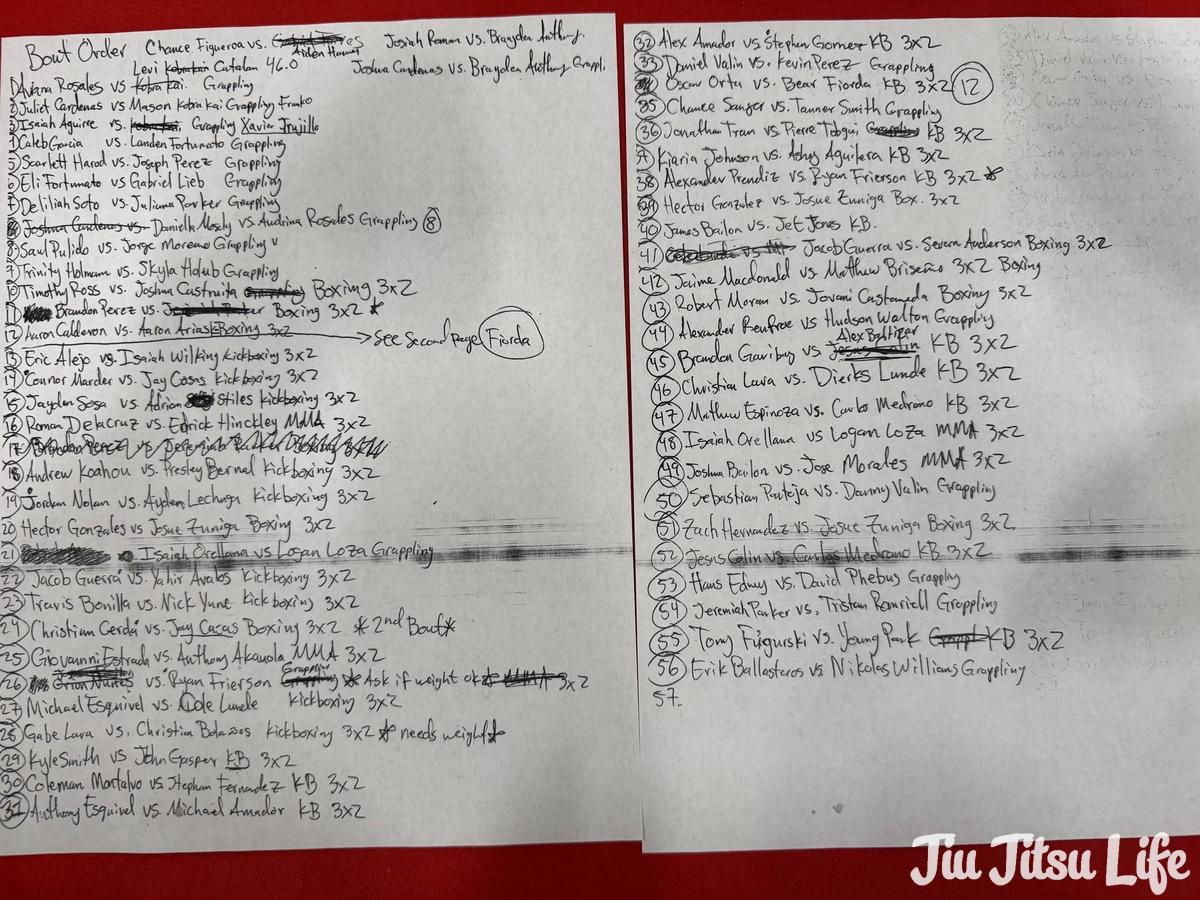 Bout Order Chance Figueroa vs. Aiden Josiah Roman vs. Brayden Anthony.
Levi Kobra kai Catalan 46.0 Joshua Cardenas vs. Brayden Anthony Grappli
1) Avana Rosales vs. Kobra Kai. Grappling
2) Juliet Cardenas vs Mason Kobra kai Grappling Franko
3) Isaiah Aguirre vs. Kobra kai. Grappling Xavier Trujillo
4) Caleb Garcia vs. Landen Fortunato Grappling
5) Scarlett Harod vs. Joseph Perez Grappling
6) Eli Fortunato vs Gabriel Lieb Grappling
7) Deliliah Soto vs. Juliana Parker Grappling
Joshua Cardenas vs. Daniella Mosely vs. Audrina Rosales Grappling 8
8) Saul Pulido vs. Jorge Moreno Grappling
9) Trinity Holmam vs. Skyla Holub Grappling
10) Timothy Ross vs. Joshua Castruita Grappling Boxing 3x2
11) Brandon Perez vs. Boxing 3x2 *
12) Aaron Calderon vs. Aaron Arias Boxing 3x2 → See Second Page Fiorda
13) Eric Alejo vs. Isaiah Wilking Kickboxing 3x2
14) Connor Marder vs. Jay Casas Kickboxing 3x2
15) Jayden Sosa vs Adrian Stiles Kickboxing 3x2
16) Roman Delacruz vs. Edrick Hinckley MMA 3x2
17) Brandon Perez vs Jeremiah Parker Boxing 3x2
18) Andrew Koahou vs. Presley Bernal Kickboxing 3x2
19) Jordan Nolan vs. Ayden Lechuga Kickboxing 3x2
20 Hector Gonzales vs Josue Zuniga Boxing 3x2
21 Isaiah Orellana vs Logan Loza Grappling
22 Jacob Guerra vs. Yahir Avalos Kickboxing 3x2
23 Travis Bonilla vs. Nick Yune Kickboxing 3x2
24 Christian Cerda vs. Jay Casas Boxing 3x2 * 2nd Bout *
25 Giovannni Estrada vs. Anthony Akauola MMA 3x2
26 Orion Nuñes vs. Ryan Frierson Grappling Grappling * Ask if weight ok * MMA 3x2
27 Michael Esquivel vs. Cole Lunde Kickboxing 3x2
28 Gabe Lara vs. Christian Kickboxing 3x2 * needs weight *
29 Kyle Smith vs John Gasper KB 3x2
30 Coleman Montalvo vs. Stephan Fernandez KB 3x2
31 Anthony Esquivel vs. Michael Amador KB 3x2
32 Alex Amador vs Stephen Gomez KB 3x2
33 Daniel Valin vs. Kevin Perez Grappling
34 Oscar Orta vs. Bear Fiorda KB 3x2 12
35 Chance Sanger vs. Tanner Smith Grappling
36 Jonathan Tran vs. Pierre Tobgui Grappling KB 3x2
37 Kiaria Johnson vs. Ashly Aguilera KB 3x2
38) Alexander Prendiz vs. Ryan Frierson KB 3x2 *
39 Hector Gonzalez vs. Josue Zuniga Box. 3x2
40 James Bailon vs. Jet Jones KB.
41 Jacob Guerra vs. Severn Anderson Boxing 3x2
42 Jaime Macdonald vs Matthew Briseño 3x2 Boxing
43 Robert Moran vs. Jovani Castaneda Boxing 3x2
44 Alexander Renfroe vs Hudson Walton Grappling
45 Brandon Garibay vs Jesus Colin Alex Baltizar KB 3x2
46 Christian Lara vs. Dierks Lunde KB 3x2
47 Mathew Espinoza vs. Carlos Medrano KB 3x2
48 Isaiah Orellana vs Logan Loza MMA 3x2
49 Joshua Bailon vs. Jose Morales MMA 3x2
50 Sebastian Pantoja vs. Danny Valin Grappling
51 Zach Hernandez vs. Josue Zuniga Boxing 3x2
52 Jesus Colin vs. Carlos Medrano KB 3x2
53 Hans Edmy vs. David Phebus Grappling
54 Jeremiah Parker vs. Tristan Romriell Grappling
55 Tony Furgurski vs. Young Park Grappl KB 3x2
56 Erik Ballasteros vs Nikolas Willians Grappling
57.
Jiu Jitsu Life